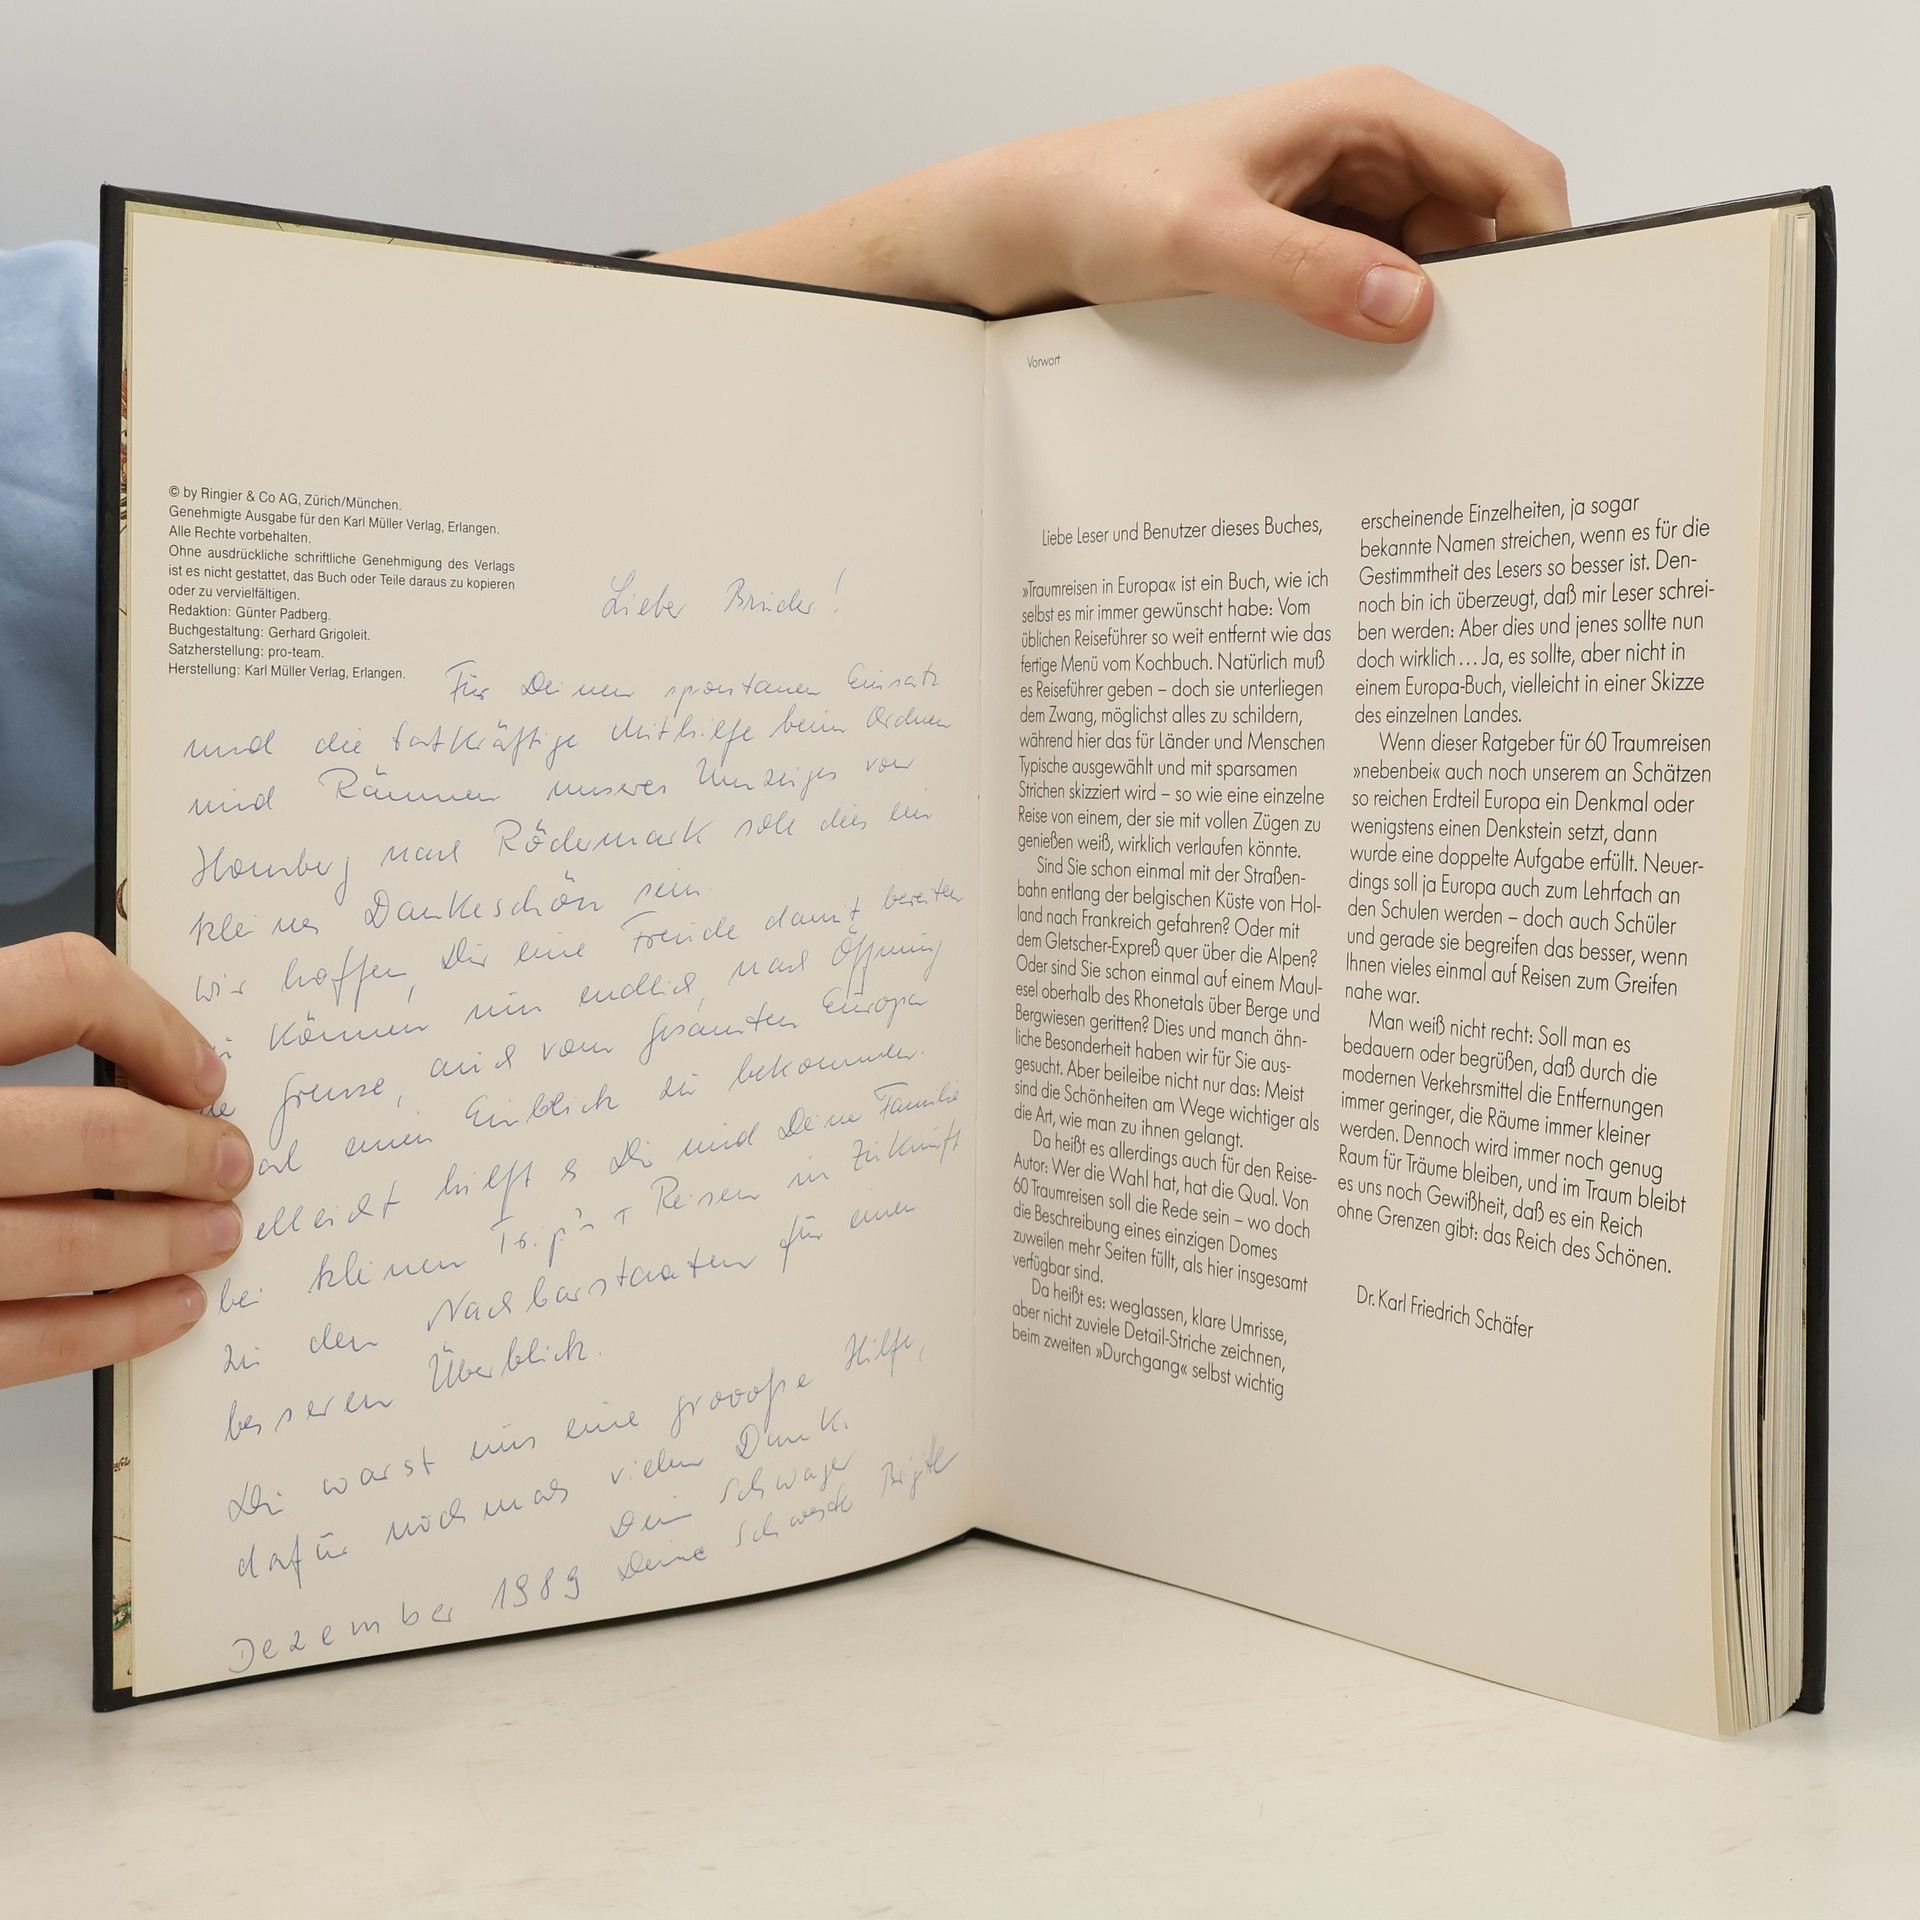 © by Ringier & Co AG, Zürich/München.
Genehmigte Ausgabe für den Karl Müller Verlag, Erlangen.
Alle Rechte vorbehalten.
Ohne ausdrückliche schriftliche Genehmigung des Verlags
ist es nicht gestattet, das Buch oder Teile daraus zu kopieren
oder zu vervielfältigen.
Redaktion: Günter Padberg.
Buchgestaltung: Gerhard Grigoleit.
Satzherstellung: pro-team.
Herstellung: Karl Müller Verlag, Erlangen.
Lieber Bruder!
Für Deinen spontanen Einsatz
und die tatkräftige Mithilfe beim Ordnen
und Räumen unseres Umzuges von
Homberg nach Rödermark soll dies ein
kleines Dankeschön sein.
Wir hoffen, Dir eine Freude damit bereiten
zu können nun endlich, nach Öffnung
Grenze, auch vom gesamten Europa
einen Einblick zu bekommen.
hilft es Dir und Deiner Familie
bei kleinen Trip's + Reisen in Zukunft
zu den Nachbarstaaten für einen
besseren Überblick.
Du warst uns eine groooße Hilfe,
dafür nochmals vielen Dank.
Dein Schwager
Deine Schwester Brigitte
Dezember 1989
Vorwort
Liebe Leser und Benutzer dieses Buches,
»Traumreisen in Europa« ist ein Buch, wie ich
selbst es mir immer gewünscht habe: Vom
üblichen Reiseführer so weit entfernt wie das
fertige Menü vom Kochbuch. Natürlich muß
es Reiseführer geben – doch sie unterliegen
dem Zwang, möglichst alles zu schildern,
während hier das für Länder und Menschen
Typische ausgewählt und mit sparsamen
Strichen skizziert wird – so wie eine einzelne
Reise von einem, der sie mit vollen Zügen zu
genießen weiß, wirklich verlaufen könnte.
Sind Sie schon einmal mit der Straßen-
bahn entlang der belgischen Küste von Hol-
land nach Frankreich gefahren? Oder mit
dem Gletscher-Expreß quer über die Alpen?
Oder sind Sie schon einmal auf einem Maul-
esel oberhalb des Rhonetals über Berge und
Bergwiesen geritten? Dies und manch ähn-
liche Besonderheit haben wir für Sie aus-
gesucht. Aber beileibe nicht nur das: Meist
sind die Schönheiten am Wege wichtiger als
die Art, wie man zu ihnen gelangt.
Da heißt es allerdings auch für den Reise-
Autor: Wer die Wahl hat, hat die Qual. Von
60 Traumreisen soll die Rede sein – wo doch
die Beschreibung eines einzigen Domes
zuweilen mehr Seiten füllt, als hier insgesamt
verfügbar sind.
Da heißt es: weglassen, klare Umrisse,
aber nicht zuviele Detail-Striche zeichnen,
beim zweiten »Durchgang« selbst wichtig
erscheinende Einzelheiten, ja sogar
bekannte Namen streichen, wenn es für die
Gestimmtheit des Lesers so besser ist. Den-
noch bin ich überzeugt, daß mir Leser schrei-
ben werden: Aber dies und jenes sollte nun
doch wirklich... Ja, es sollte, aber nicht in
einem Europa-Buch, vielleicht in einer Skizze
des einzelnen Landes.
Wenn dieser Ratgeber für 60 Traumreisen
»nebenbei« auch noch unserem an Schätzen
so reichen Erdteil Europa ein Denkmal oder
wenigstens einen Denkstein setzt, dann
wurde eine doppelte Aufgabe erfüllt. Neuer-
dings soll ja Europa auch zum Lehrfach an
den Schulen werden – doch auch Schüler
und gerade sie begreifen das besser, wenn
Ihnen vieles einmal auf Reisen zum Greifen
nahe war.
Man weiß nicht recht: Soll man es
bedauern oder begrüßen, daß durch die
modernen Verkehrsmittel die Entfernungen
immer geringer, die Räume immer kleiner
werden. Dennoch wird immer noch genug
Raum für Träume bleiben, und im Traum bleibt
es uns noch Gewißheit, daß es ein Reich
ohne Grenzen gibt: das Reich des Schönen.
Dr. Karl Friedrich Schäfer